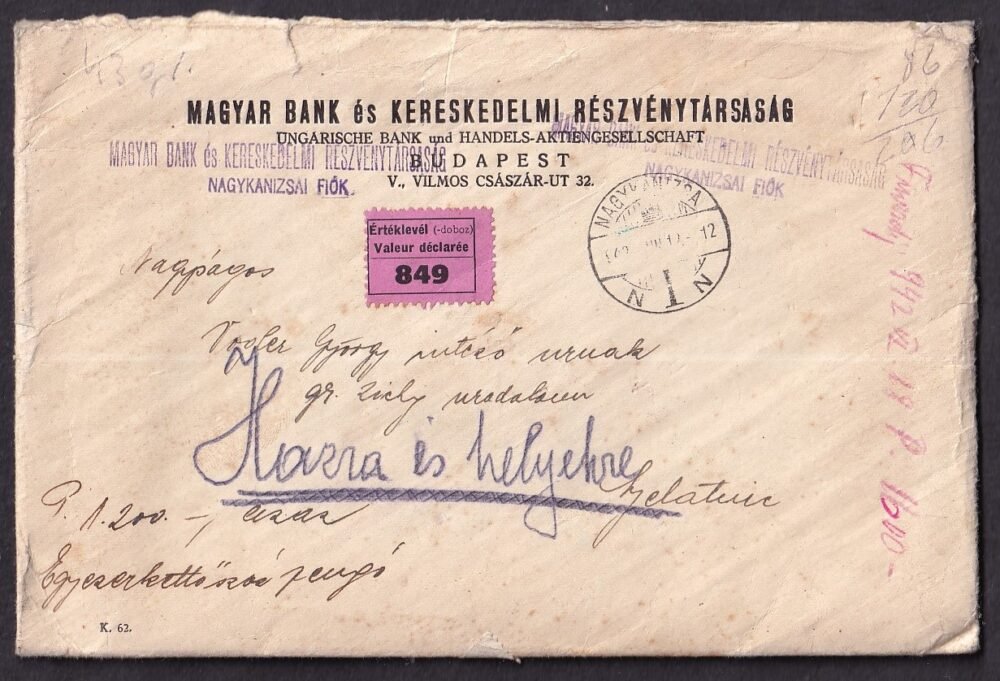 13 gr.
86
120
206
MAGYAR BANK és KERESKEDELMI RÉSZVÉNYTÁRSASÁG
UNGARISCHE BANK und HANDELS-AKTIENGESELLSCHAFT
MAGYAR BANK és KERESKEDELMI RÉSZVÉNYTÁRSASÁG
NAGYKANIZSAI FIÓK
MAGYAR BANK és KERESKEDELMI RÉSZVÉNYTÁRSASÁG
NAGYKANIZSAI FIÓK
BUDAPEST
V., VILMOS CSÁSZÁR-UT 32.
Értéklevél (-doboz)
Valeur déclarée
849
NAGYKANIZSA
12
N 1 N
Nagyságos
Vogler György intéző urnak
gr. Zichy uradalom
Házra és helyekre
P. 1.200.-, azaz
Egyezerkettőszáz pengő
942 VI 18 P. 1600-
K. 62.